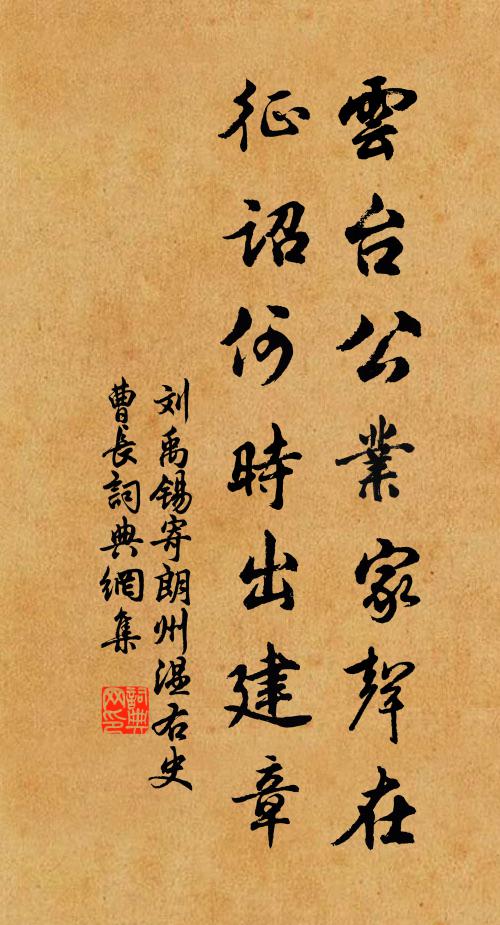 雲台公業家聲在
征詔何時出建章
刘禹锡寄朗州温右史
曹長詞典網集
詞典网印